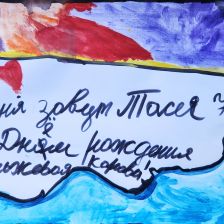 ня зовут Тася
с
Днём рождения
ыжовая Карова"